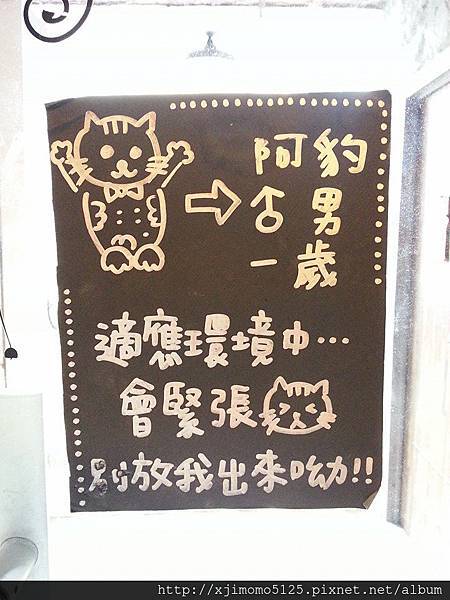 阿豹
♂男
一歲
適應環境中…
會緊張
別放我出來呦!!
http://xjimomo5125.pixnet.net/album